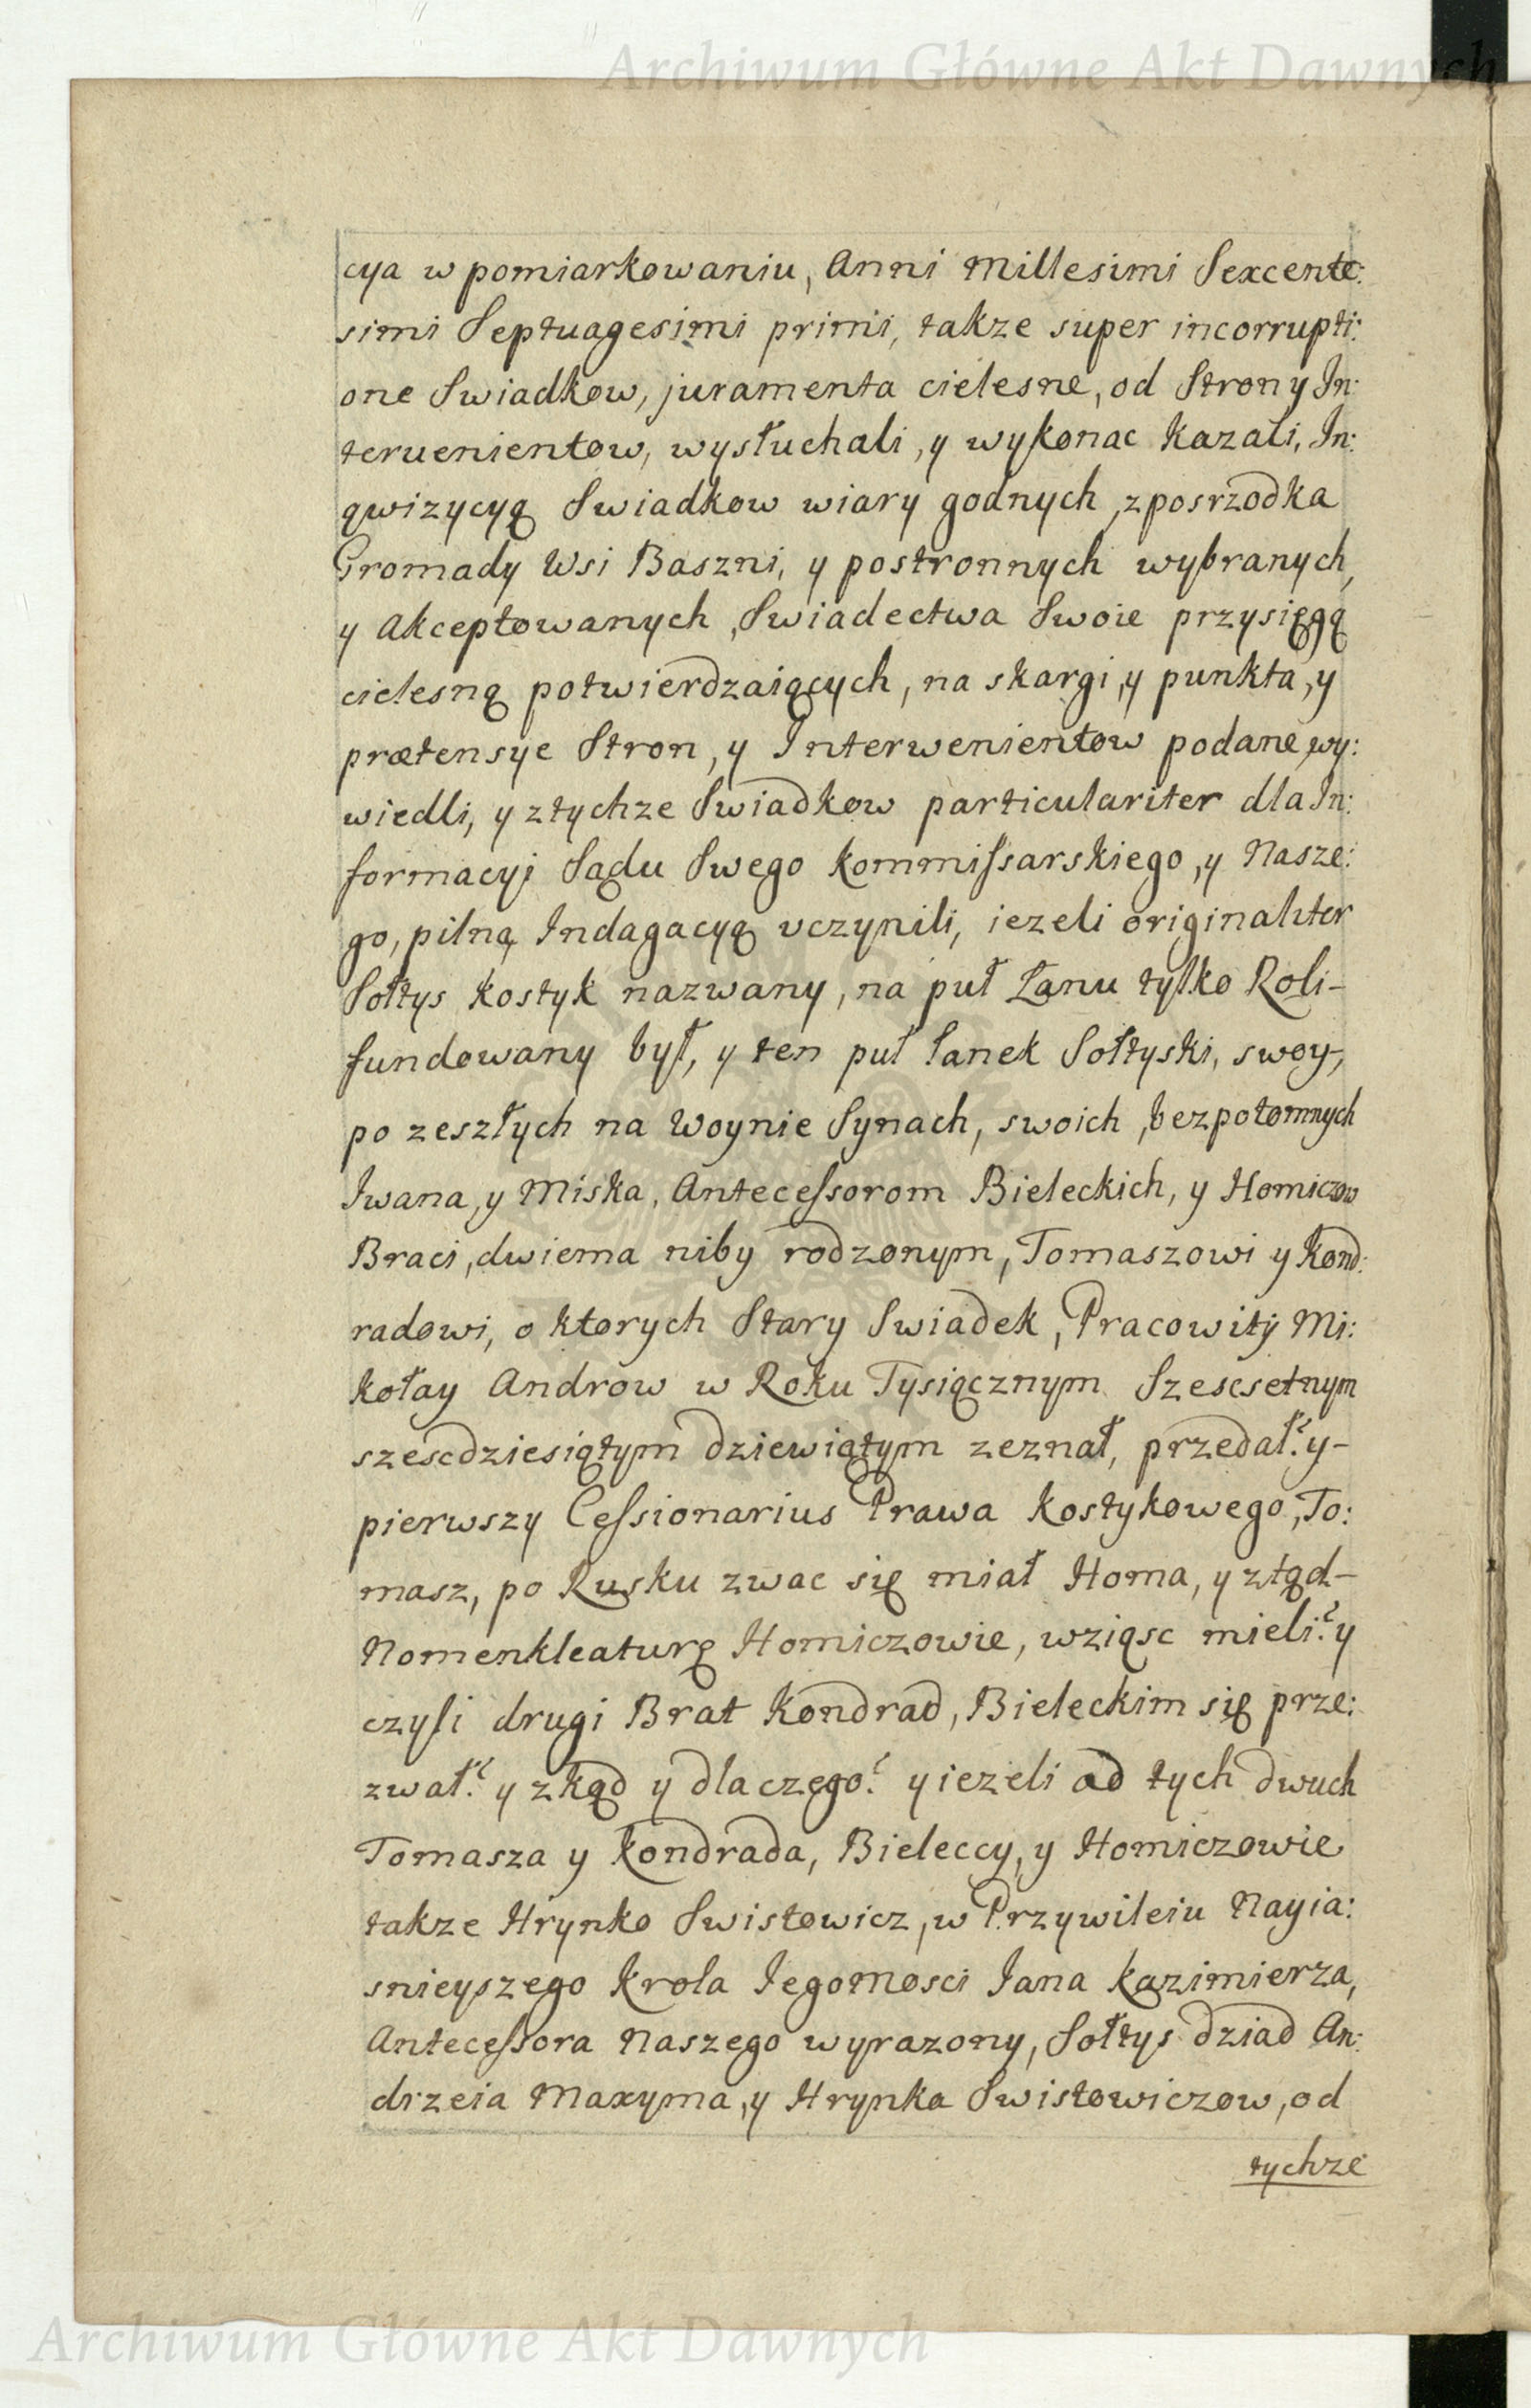 Archiwum Główne Akt Dawnych
cya w pomiarkowaniu, Anni Millesimi Sexcente:
simi Septuagesimi primi, takze super incorrupti:
one Swiadkow, juramenta cielesne, od Strony In:
teruenientow, wysłuchali, y wykonac kazali, In:
qwizycyą Swiadkow wiary godnych, zposrzodka
Gromady Wsi Baszni, y postronnych wybranych,
y Akceptowanych, Swiadectwa Swoie przysięgą
cielesną potwierdzaiących, na skargi, y punkta, y
prætensye Stron, y Interwenientow podane, wy:
wiedli, y ztychze Swiadkow particulariter dla In:
formacyi Sądu Swego Kommissarskiego, y Nasze:
go, pilną Indagacyą vczynili, iezeli originaliter
Sołtys Kostyk nazwany, na puł Łanu tylko Roli-
fundowany był, y ten puł łanek Sołtyski, swoy,
po zeszłych na Woynie Synach, swoich, bezpotomnych
Iwana, y Miska, Antecessorom Bieleckich, y Homiczow
Braci, dwiema niby rodzonym, Tomaszowi y Kond:
radowi, o ktorych Stary Swiadek, Pracowity Mi:
kołay Androw w Roku Tysiącznym Szescsetnym
szescdziesiątym dziewiątym zeznał, przedał? y-
pierwszy Cessionarius Prawa Kostykowego, To:
masz, po Rusku zwac się miał Homa, y ztąd-
Nomenkleaturę Homiczowie, wziąsc mieli? y
czyli drugi Brat Kondrad, Bieleckim się prze:
zwał? y zkąd y dla czego? y iezeli od tych dwuch
Tomasza y Kondrada, Bieleccy, y Homiczowie
takze Hrynko Swistowicz, w Przywileiu Nayia:
snieyszego Krola Iegomosci Iana Kazimierza,
Antecessora Naszego wyrazony, Sołtys dziad An:
drzeia Maxyma, y Hrynka Swistowiczow, od
tychze
Archiwum Główne Akt Dawnych